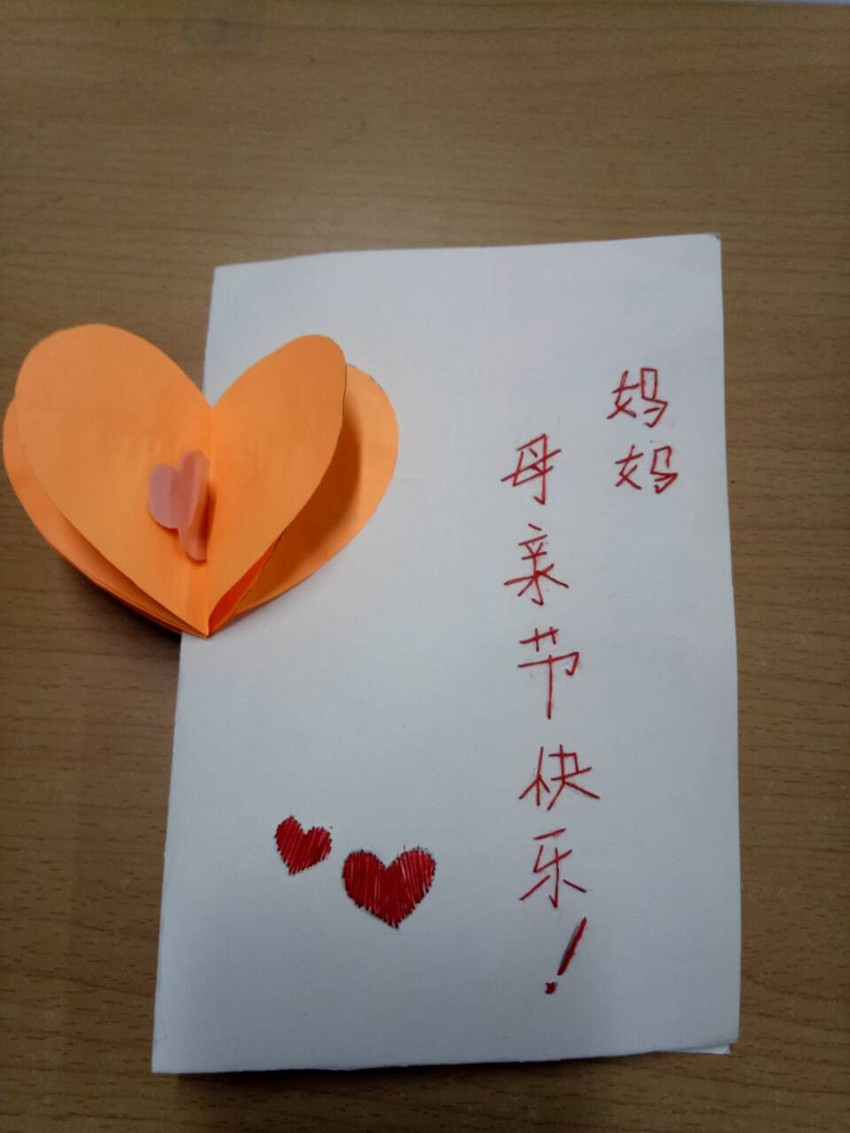 妈妈
母亲节快乐!